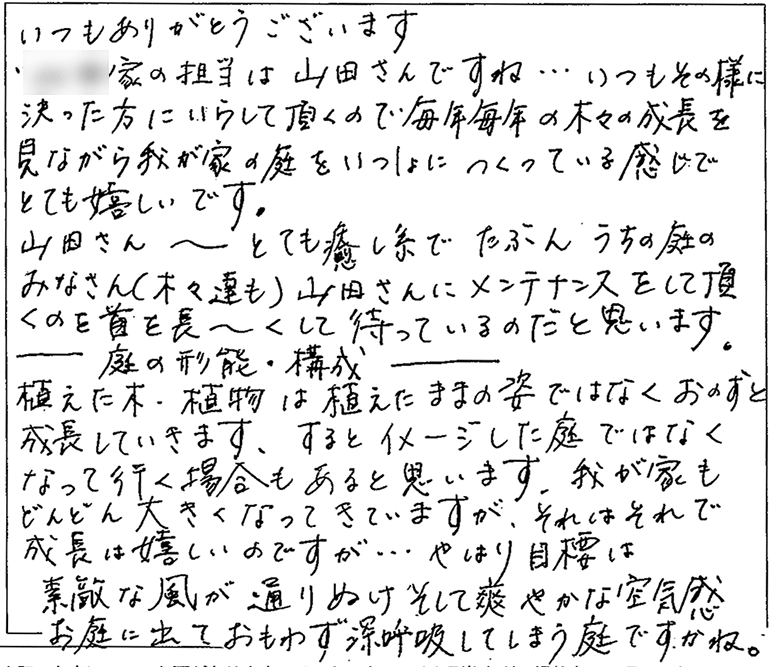 いつもありがとうございます
家の担当は山田さんですね…いつもその様に
決った方にいらして頂くので毎年毎年の木々の成長を
見ながら我が家の庭をいっしょにつくっている感じで
とても嬉しいです。
山田さん 〜 とても癒し系で たぶん うちの庭の
みなさん(木々達も)山田さんにメンテナンスをして頂
くのを首を長〜くして待っているのだと思います。
── 庭の形能・構成 ────
植えた木・植物は植えたままの姿ではなくおのずと
成長していきます、するとイメージした庭ではなく
なって行く場合もあると思います、我が家も
どんどん大きくなってきていますが、それはそれで
成長は嬉しいのですが…やはり目標は
素敵な風が通りぬけそして爽やかな空気感
お庭に出ておもわず深呼吸してしまう庭ですかね。